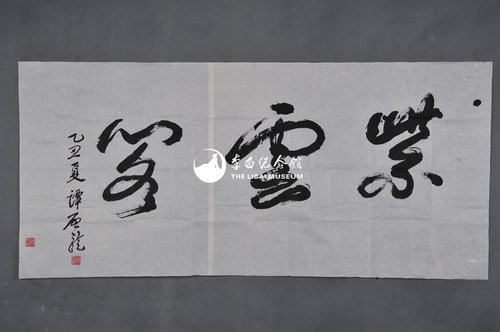 紫雲阁
乙丑夏 譚启龍
李白纪念馆
THE LIBAI MUSEUM